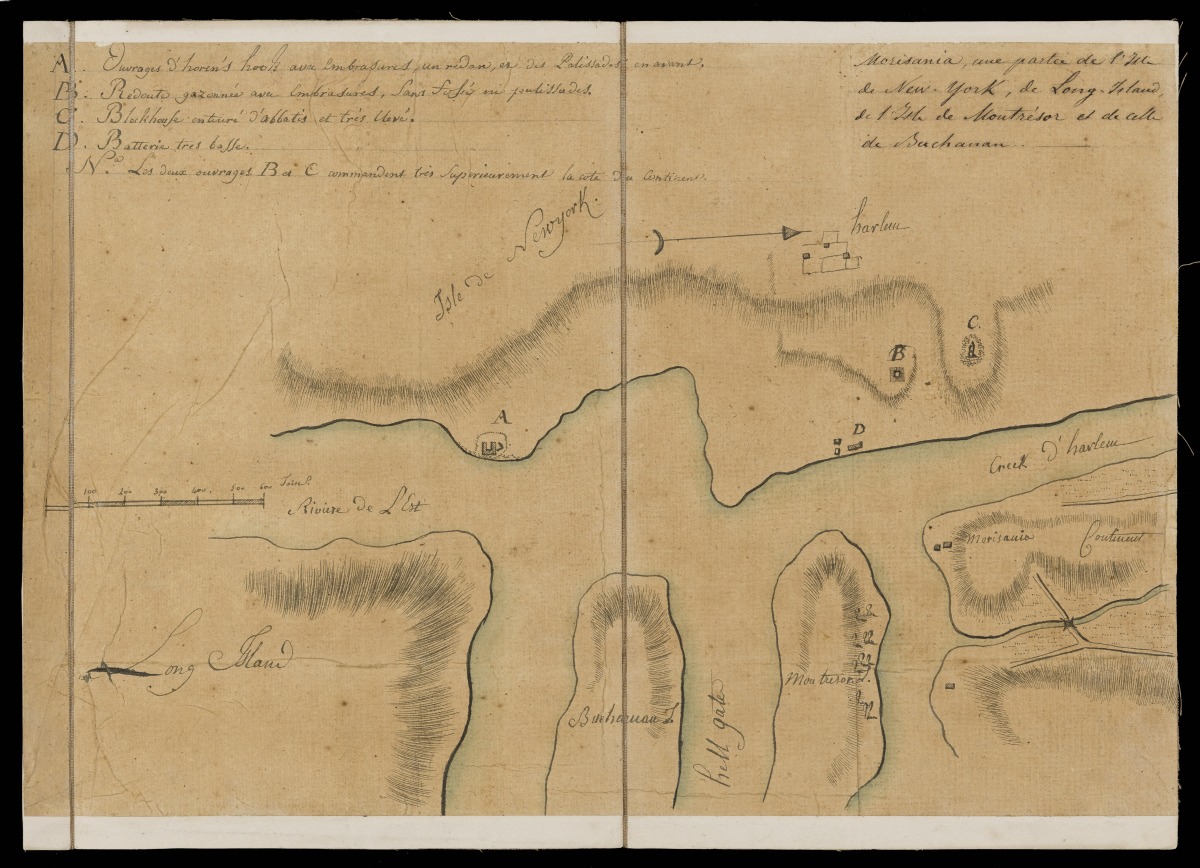 A. Ouvrages d'horen's hook avec Embrasures, un redan, et des Palissades en avant.
B. Redoute gazonnée avec Embrasures, sans fossés ni palissades.
C. Blockhouse entouré d'abbatis et très élevé.
D. Batterie très basse.
N.a Les deux ouvrages B et C commandent très supérieurement la cote du Continent.
Morisania, une partie de l'Isle
de New-York, de Long-Island,
de l'Isle de Montrésor et de celle
de Buchanan.
Isle de Newyork.
harlem
C.
B
A
D
Creek d'harlem
100 200 300 400 500 600 Toises.
Rivière de L'Est
Morisania Continent
Long Island
Montresor I.
Buchanan I.
hell gate